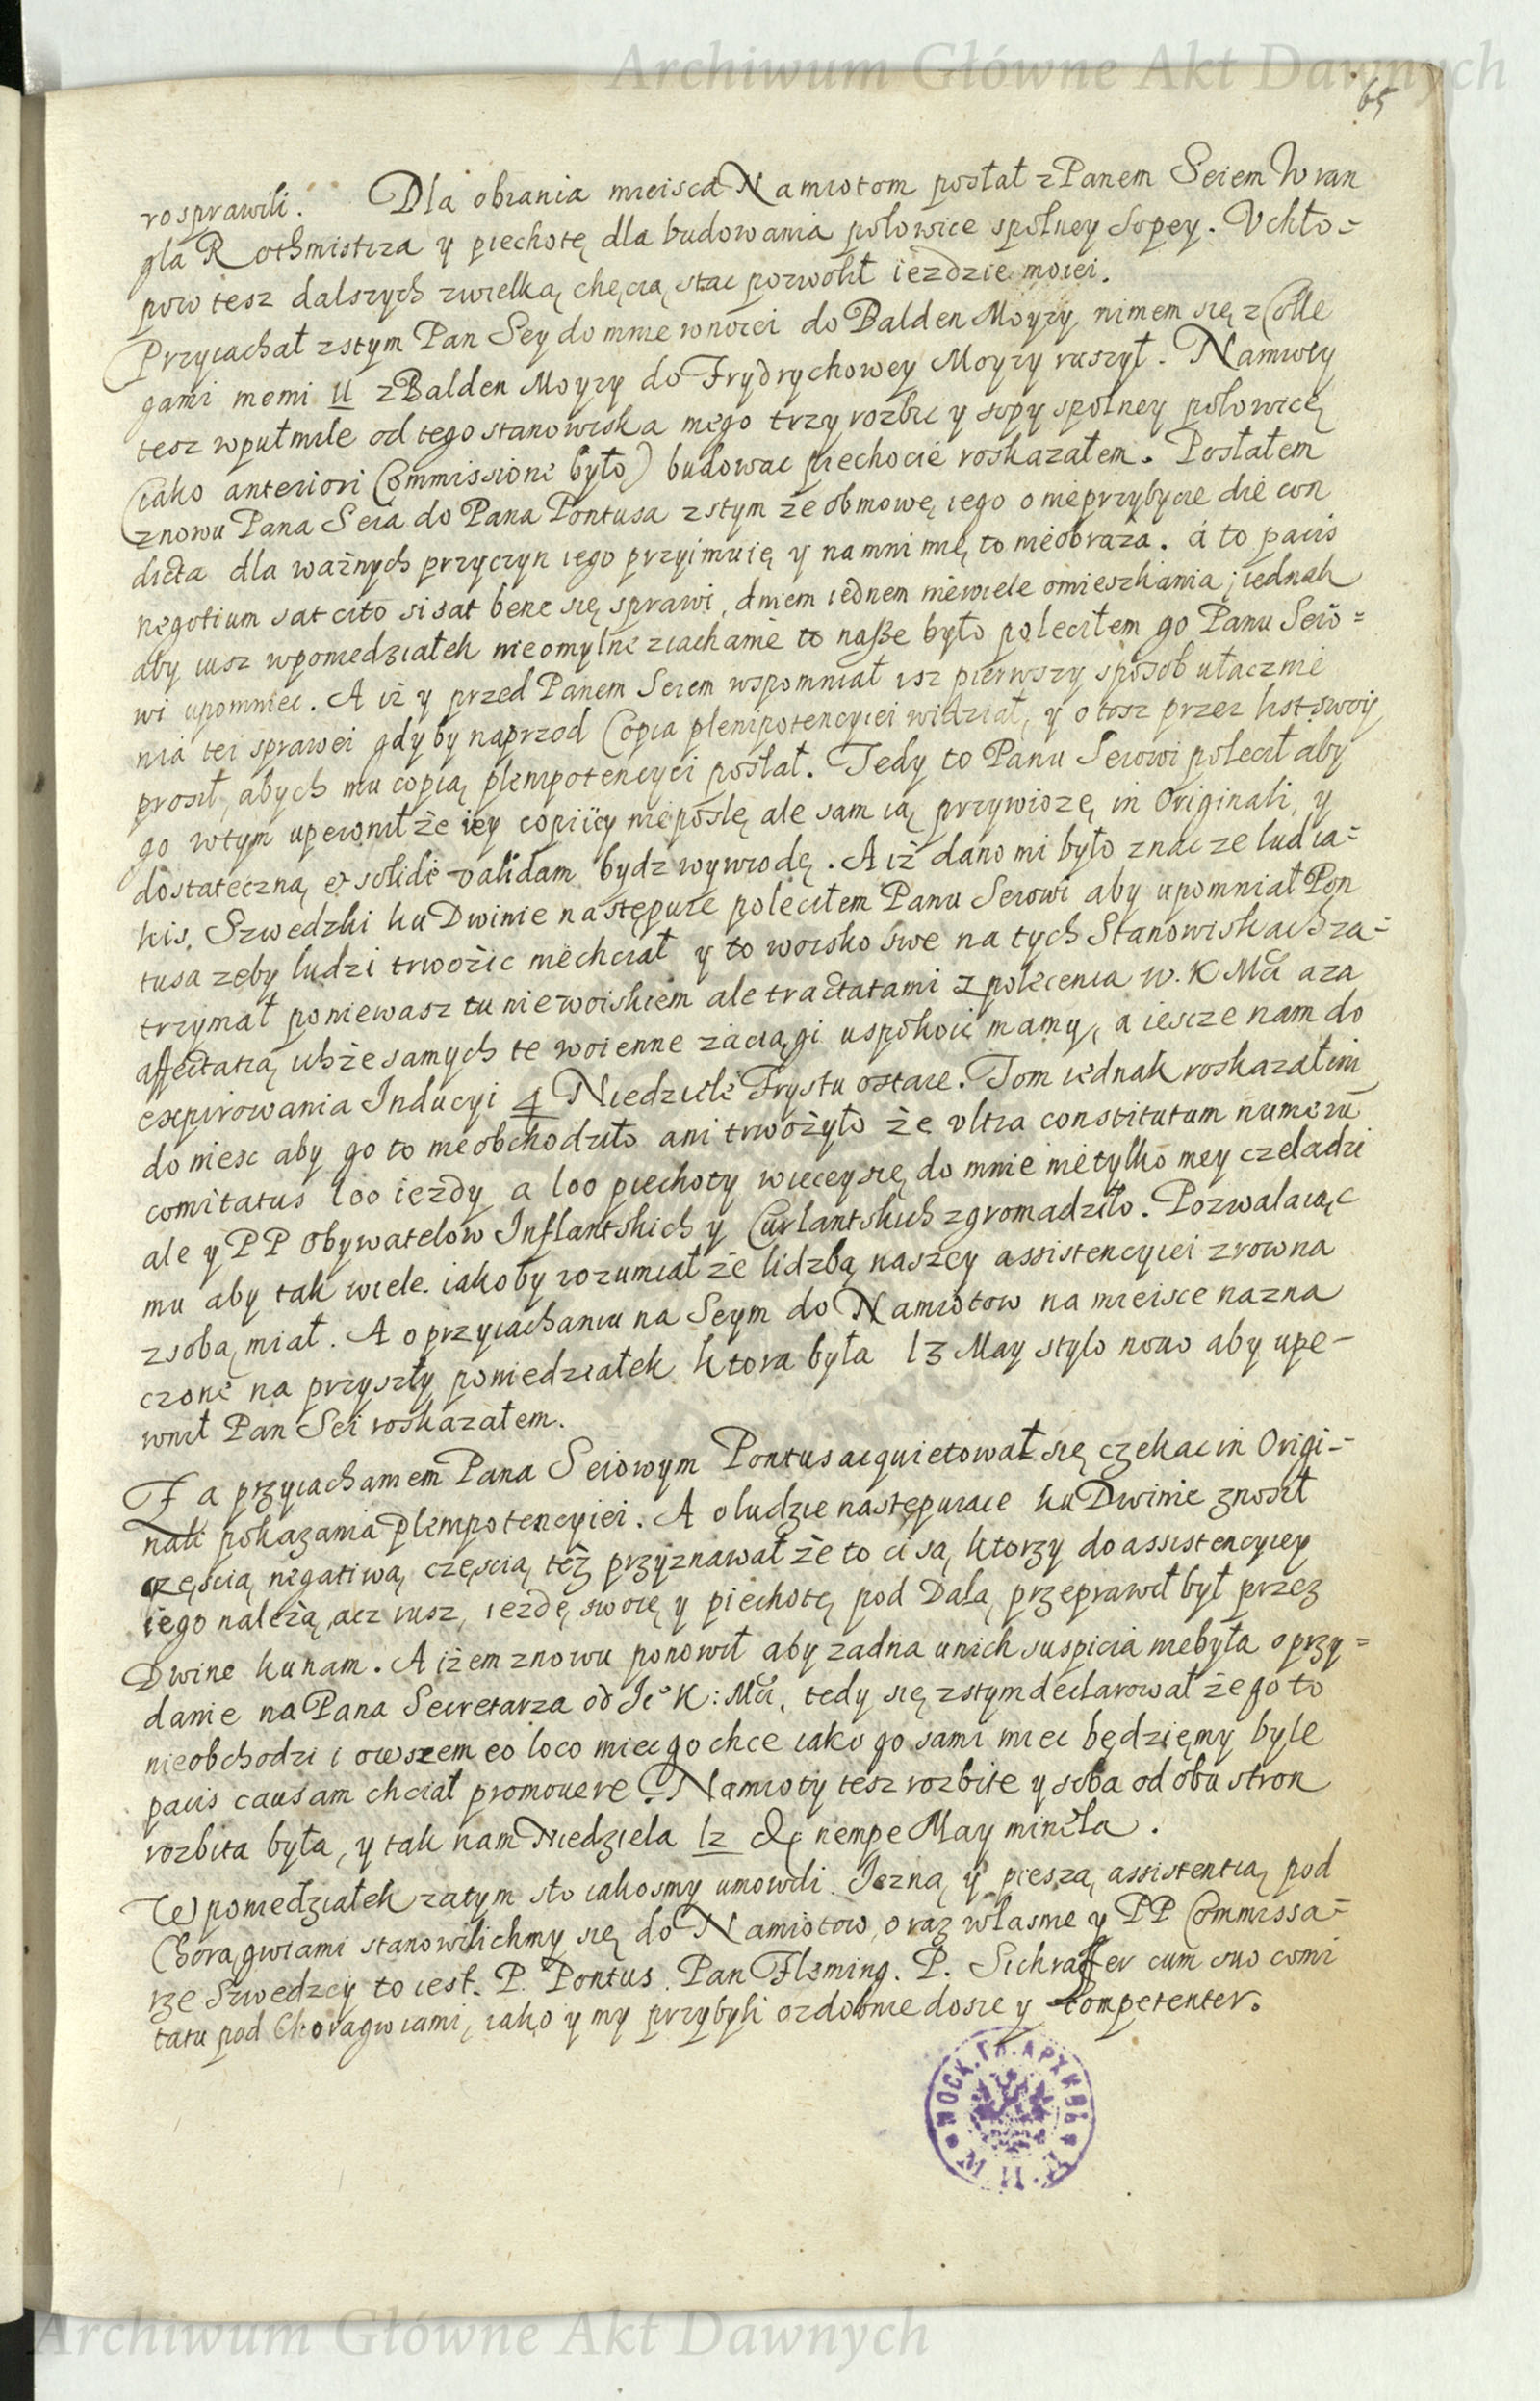 Archiwum Główne Akt Dawnych
65
rosprawili. Dla obrania mieisca Namiotom posłał z Panem Seiem Wran
gla Rothmistrza y piechotę dla budowania połowice spolney Sopey. Vchło=
pow tesz dalszych zwielką chęcią stac pozwolił iezdzie moiei.
Przyiachał zstym Pan Sey do mnie wnocei do Balden Moyzy, nimem się z Colle
gami memi 11 z Balden Moyzy do Frydrychowey Moyzy ruszył. Namioty
tesz wpułmile od tego stanowiska mego trzy rozbic y sopy spolney połowicę
(iako anteriori Commissione było) budowac piechocie roskazałem. Posłałem
znowu Pana Seia do Pana Pontusa zstym że obmowę iego o nieprzybycie die con
dicta dla ważnych przyczyn iego przyimuię y namni mię to nieobraża. á to pacis
negotium sat cito si sat bene się sprawi, dniem iednem niewiele omieszkania; iednak
aby iusz wponiedziałek nieomylne ziachanie to nasze było poleciłem go Panu Seio=
wi upomniec. A iż y przed Panem Seiem wspomniał isz pierwszy sposob ułacznie
nia tei sprawei gdyby naprzod Copią plenipotencyiei widział, y otosz przez list swoy
prosił, abych mu copią plenipotencyei posłał. Tedy to Panu Seiowi polecił aby
go wtym upewnił że iey copiiey nieposlę ale sam ią przywiozę in Originali, y
dostateczną et solide validam bydz wywiodę. A iż dano mi było znac ze lud ia=
kis, Szwedzki ku Dwinie następuie poleciłem Panu Seiowi aby upomniał Pon
tusa zeby ludzi trwożic niechciał y to woisko swe na tych Stanowiskach za=
trzymał poniewasz tu nie woiskiem ale tractatami z polecenia W. K Mći a za
affectatią ichże samych te woienne zaciągi uspokoic mamy, a iescze nam do
expirowania Inducyi 4 Niedziele Frystu ostaie. Tom iednak roskazał im
doniesc aby go to nieobchodziło ani trwożyło że vltra constitutum numerū
comitatus 100 iezdy a 100 piechoty wiecey się do mnie nietylko mey czeladzi
ale y PP Obywatelow Inflantskich y Curlantskich zgromadziło. Pozwalaiąc
mu aby tak wiele. iakoby rozumiał że lidzbą naszey assistencyiei zrowna
zsobą miał. A o przyiachaniu na Seym do Namiotow na mieisce nazna
czone na przyszły poniedziałek ktora była 13 May stylo nouo aby upe-
wnił Pan Sei roskazałem.
Za przyiachaniem Pana Seiowym Pontus acquietował się czekac in Origi-
nali pokazania plenipotencyiei. A o ludzie następuiace ku Dwinie znosił
częscią negatiwą częscią też przyznawał że to ci są ktorzy do assistencyiey
iego należą, acz iusz, iezdę swoię y piechotę pod Dalą przeprawił był przez
Dwine ku nam. A iżem znowu ponowił aby zadna unich suspicia niebyła o przy=
danie na Pana Secretarza od Iᵒ K: Mći, tedy się zstym declarował że go to
nieobchodzi i owszem eo loco miec go chce iako go sami miec będziemy byle
pacis causam chciał promouere. Namioty tesz rozbite y soba od obu stron
rozbita była, y tak nam Niedziela 12 die nempe May minęła.
W poniedziałek zatym sto iakosmy umowili Iezną y pieszą assistentią pod
Chorągwiami stanowilichmy się do Namiotow, oraz własnie y PP Commissa=
rze Szwedzcy to iest. P. Pontus. Pan Fleming. P. Sichraffer cum suo comi
tatu pod Chorągwiami, iako y my przybyli ozdobnie dosie y Competenter.
МОСК. ГЛ. АРХИВЪ
Archiwum Główne Akt Dawnych